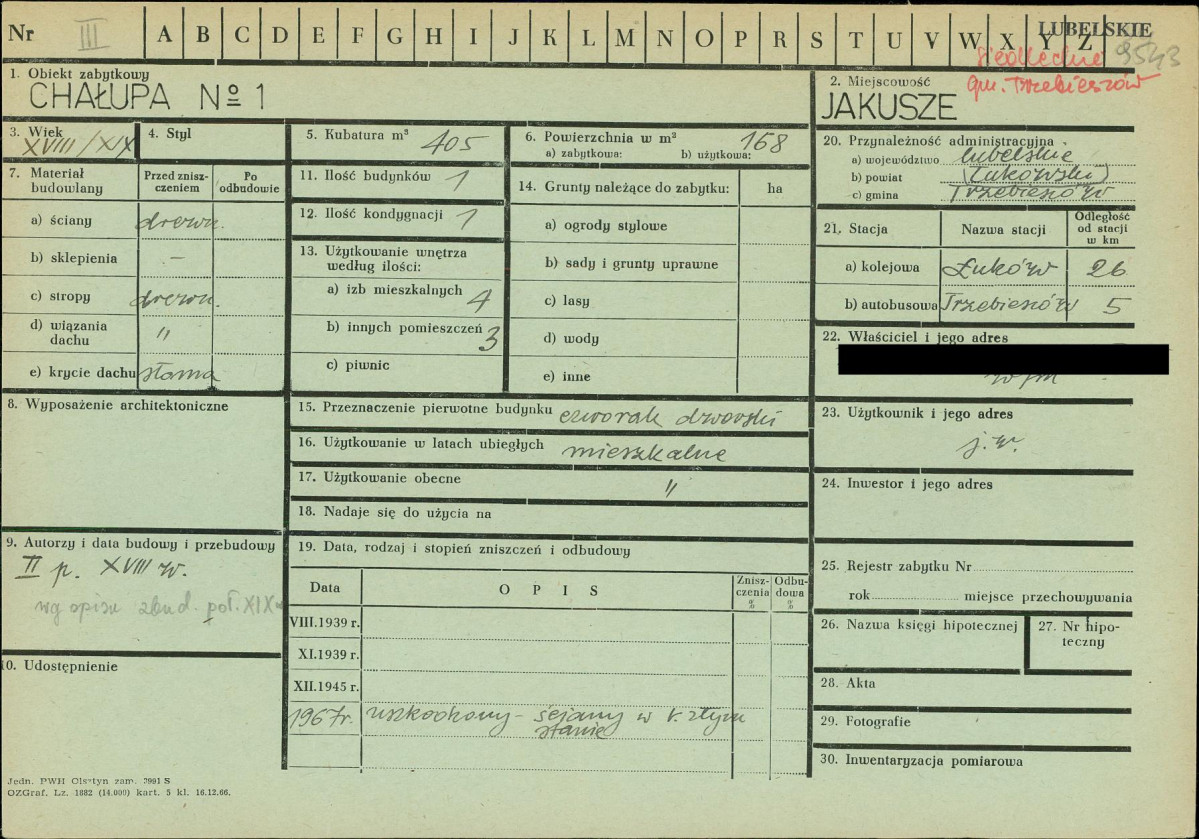 Nr III A B C D E F G H I J K L M N O P R S T U V W X Y Z LUBELSKIE
Siedleckie 9543
gm. Trzebieszów
1. Obiekt zabytkowy
CHAŁUPA No 1
2. Miejscowość
JAKUSZE
3. Wiek
XVIII/XIX
4. Styl
5. Kubatura m³ 405
6. Powierzchnia w m² 168
a) zabytkowa: b) użytkowa:
7. Materiał budowlany
Przed zniszczeniem
Po odbudowie
a) ściany drewn.
b) sklepienia —
c) stropy drewn.
d) wiązania dachu "
e) krycie dachu słoma
8. Wyposażenie architektoniczne
9. Autorzy i data budowy i przebudowy
II p. XVIII w.
wg opisu zbud. poł. XIX w
10. Udostępnienie
11. Ilość budynków 1
12. Ilość kondygnacji 1
13. Użytkowanie wnętrza
według ilości:
a) izb mieszkalnych 4
b) innych pomieszczeń 3
c) piwnic
14. Grunty należące do zabytku: ha
a) ogrody stylowe
b) sady i grunty uprawne
c) lasy
d) wody
e) inne
15. Przeznaczenie pierwotne budynku czworak dworski
16. Użytkowanie w latach ubiegłych mieszkalne
17. Użytkowanie obecne "
18. Nadaje się do użycia na
19. Data, rodzaj i stopień zniszczeń i odbudowy
Data OPIS Zniszczenia w % Odbudowa w %
VIII.1939 r.
XI.1939 r.
XII.1945 r.
1967r. uszkodzony - ściany w b. złym
stanie
20. Przynależność administracyjna
a) województwo lubelskie
b) powiat (Łukowski)
c) gmina Trzebieszów
21. Stacja Nazwa stacji Odległość od stacji w km
a) kolejowa Łuków 26
b) autobusowa Trzebieszów 5
22. Właściciel i jego adres
23. Użytkownik i jego adres
j.w.
24. Inwestor i jego adres
25. Rejestr zabytku Nr
rok miejsce przechowywania
26. Nazwa księgi hipotecznej
27. Nr hipoteczny
28. Akta
29. Fotografie
30. Inwentaryzacja pomiarowa
Jedn. PWH Olsztyn zam. 7991 S
OZGraf. Lz. 1882 (14.000) kart. 5 kl. 16.12.66.